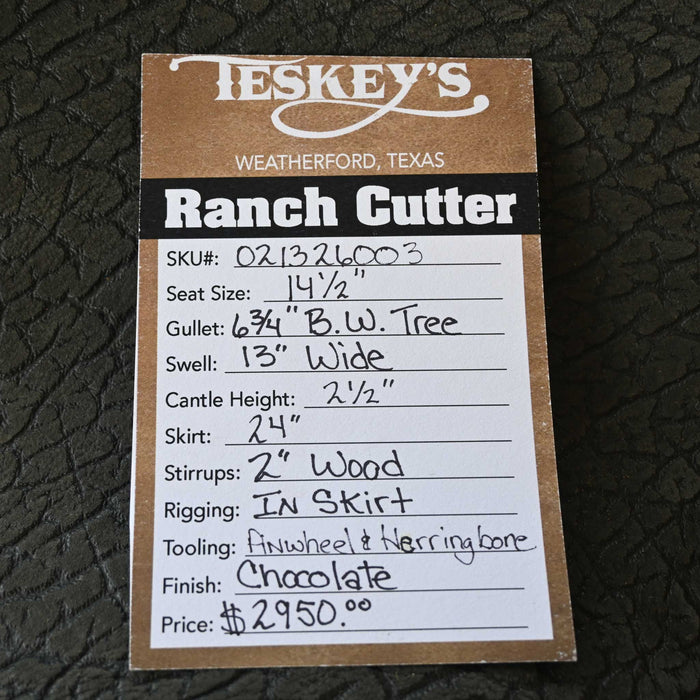 TESKEY'S
WEATHERFORD, TEXAS
Ranch Cutter
SKU#: 021326003
Seat Size: 14 1/2"
Gullet: 6 3/4" B.W. Tree
Swell: 13" Wide
Cantle Height: 2 1/2"
Skirt: 24"
Stirrups: 2" Wood
Rigging: IN Skirt
Tooling: Pinwheel & Herringbone
Finish: Chocolate
Price: $2950.00